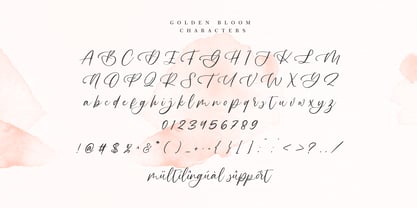 GOLDEN BLOOM
CHARACTERS
A B C D E F G H I J K L M
N O P Q R S T U V W X Y Z
a b c d e f g h i j k l m n o p q r s t u v w x y z
0 1 2 3 4 5 6 7 8 9
múltilingúál súppórt